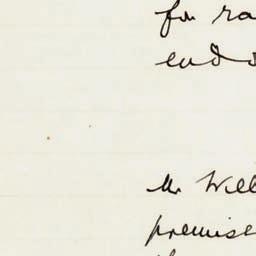 for ra
end
Mr Will
premise